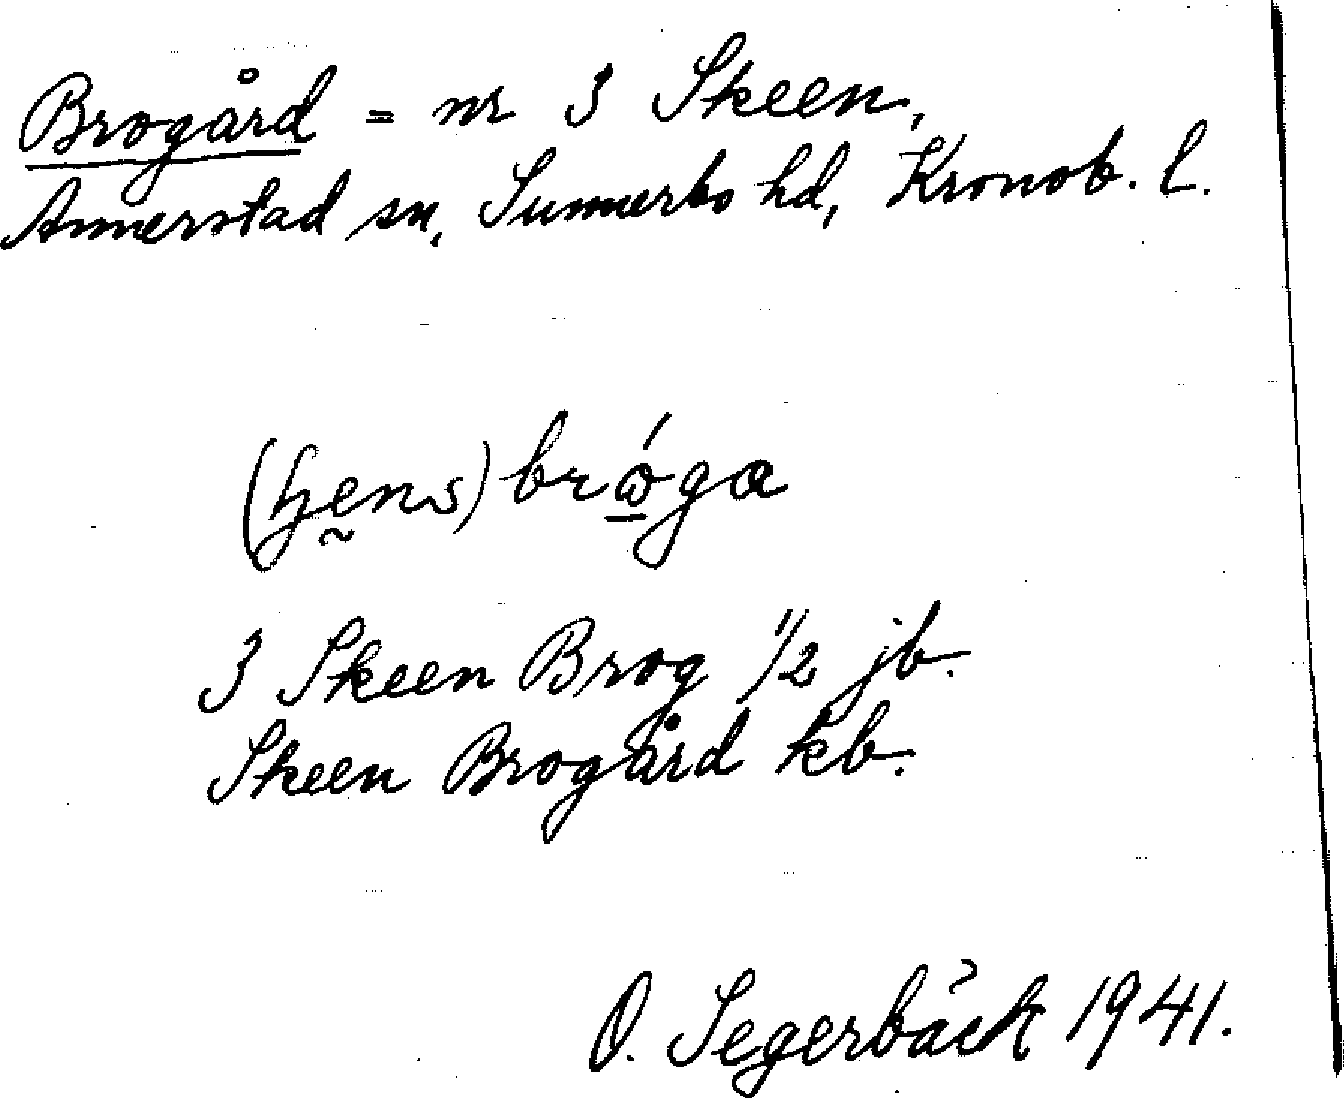 Brogård = nr 3 Skeen,
Annerstad sn, Sunnerbo hd, Kronob. l.
(ɧḛns) brώ̲ga
3 Skeen Brog 1/2 jb.
Skeen Brogård kb.
O. Segerbäck 1941.